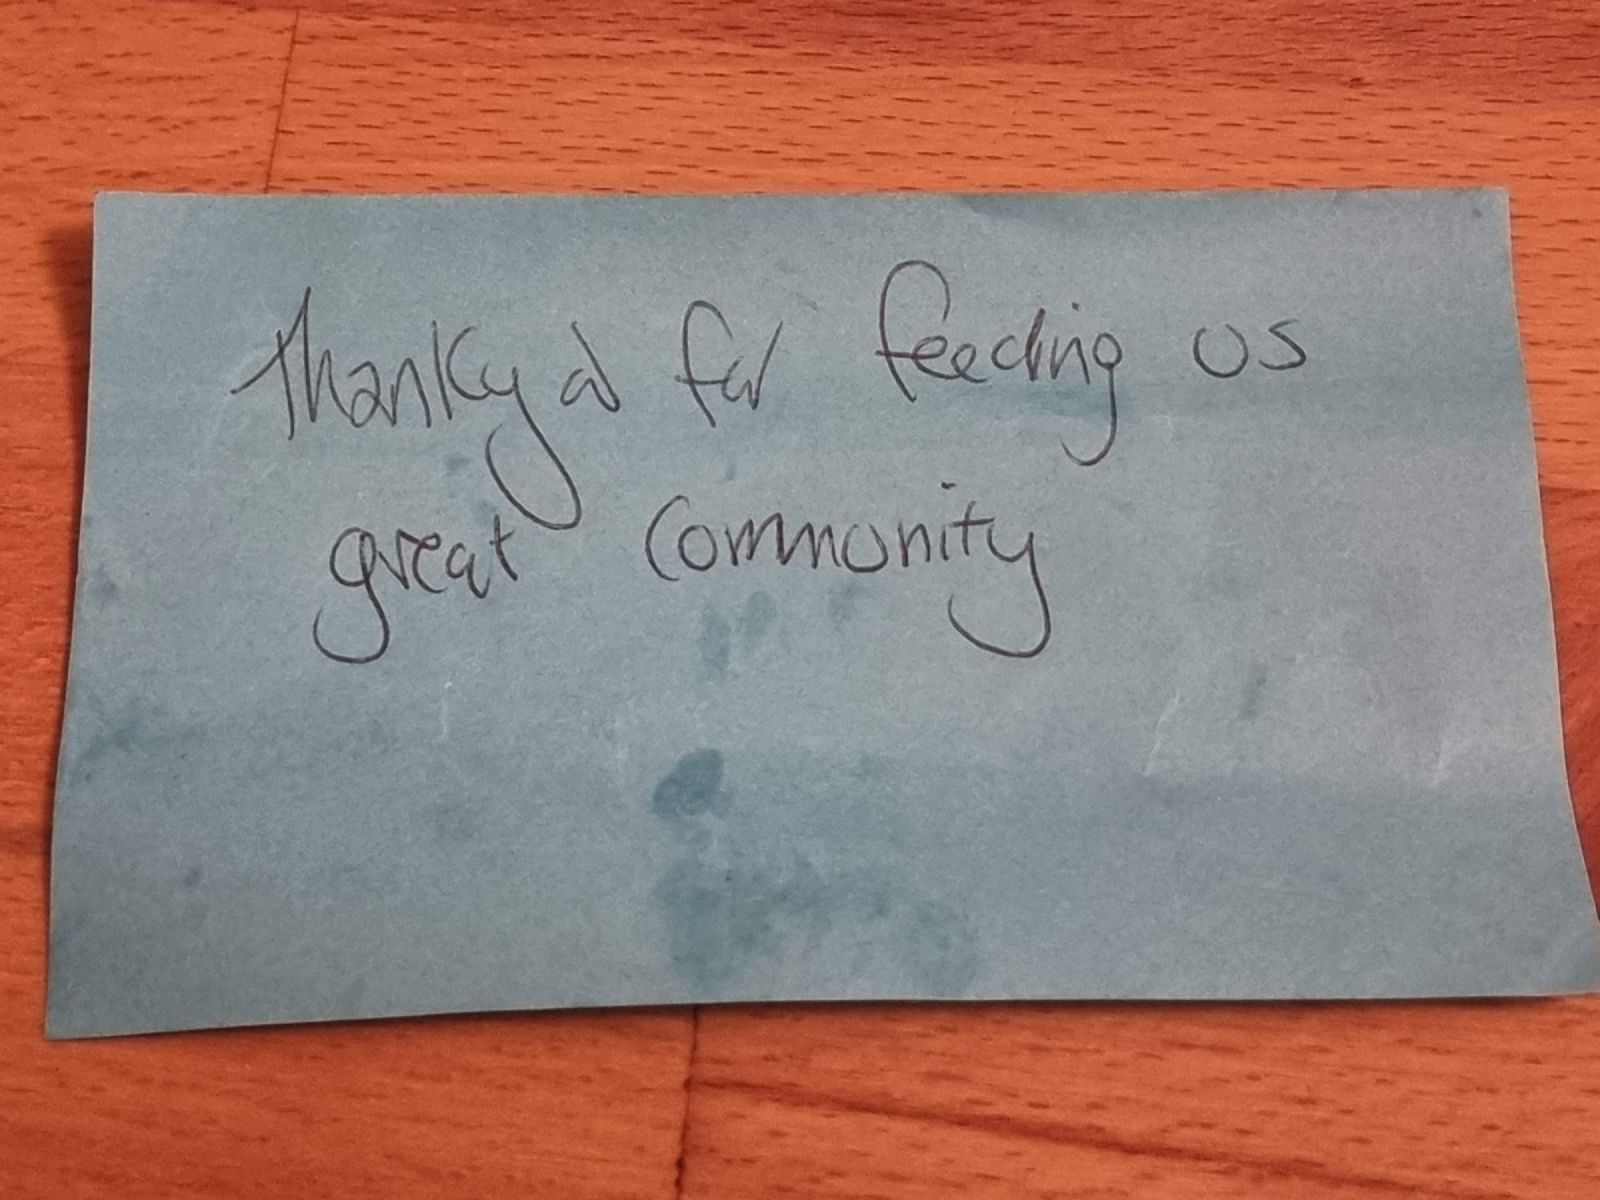 Thankyou for feeding us
great community